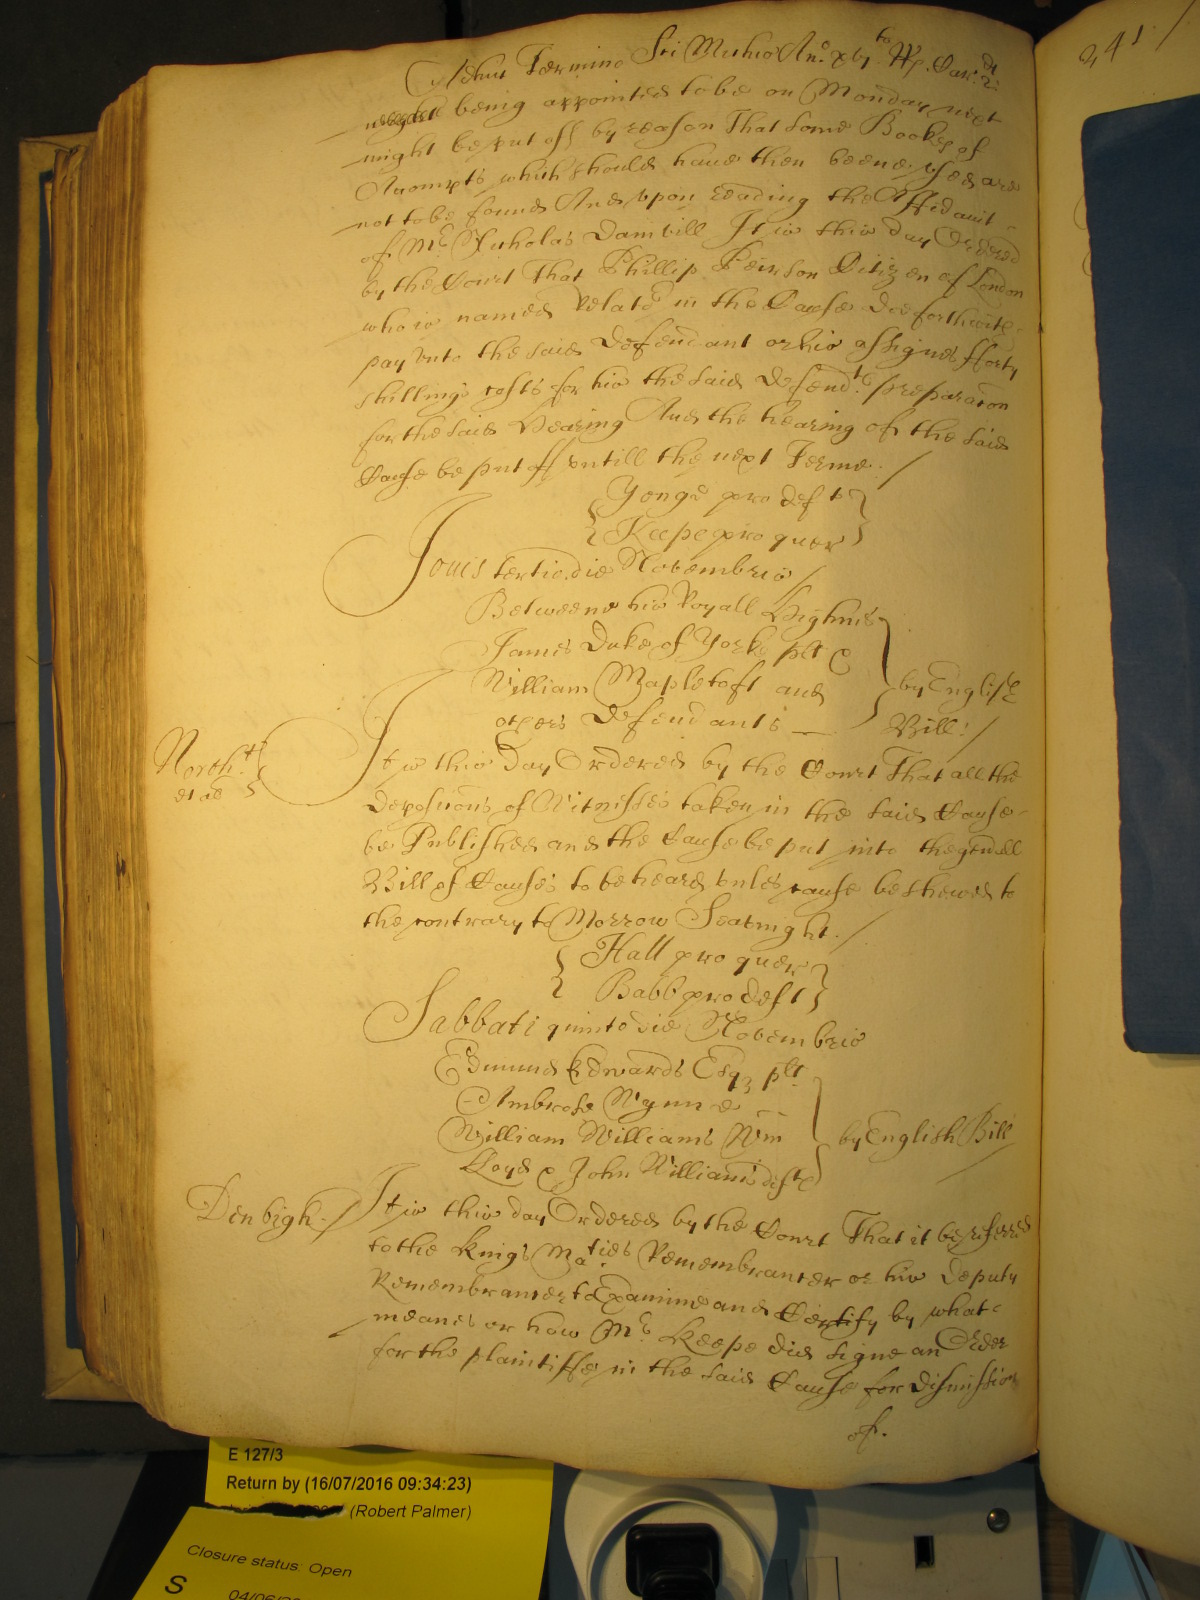 Adhuc Termino Sci Michis An.o xvj.to Rs. Car: 2.di
being appointed to be on Monday next
might be put off by reason That some Bookes of
Accompts which should have then beene used are
not to be found And upon reading the Affidavit
of Mr. Nicholas Dambill It is this day Ordered
by the Court That Phillip Peirson Citizen of London
who is named Relator in the Cause doe forthwith
pay unto the said Defendant or his assignes fforty
shillings costs for his the said Defend.ts preparacon
for the said Hearing And the hearing of the said
Cause be put off untill the next Terme.
Yonge pro def.t
Keepe pro quer
Jovis tertio die Novembris
Betweene his Royall Highnes
James Duke of Yorke plt &
William Mapletoft and
others Defendants
by English
Bill:
North.t
et al
It is this Day Ordered by the Court That all the
Deposicons of Witnesses taken in the said Cause
be Published and the Cause be put into the genall
Bill of Causes to be heard unles cause be shewed to
the contrary to Morrow Seavnight.
Hall pro quer
Babb pro deft
Sabbati quinto die Novembris
Edmund Edwards Esq plt
Ambrose Wynne
William Williams Wm
Lloyd & John Williams defts
by English Bill
Denbigh.
It is this day Ordered by the Court That it be referred
to the Kings Ma.ties Remembrancer or his Deputy
Remembrancer to Examine and Certify by what
meanes or how Mr. Keepe did signe an Order
for the plaintiffe in the said Cause for dismission
of.
241
E 127/3
Return by (16/07/2016 09:34:23)
(Robert Palmer)
Closure status: Open
S
04/06/20